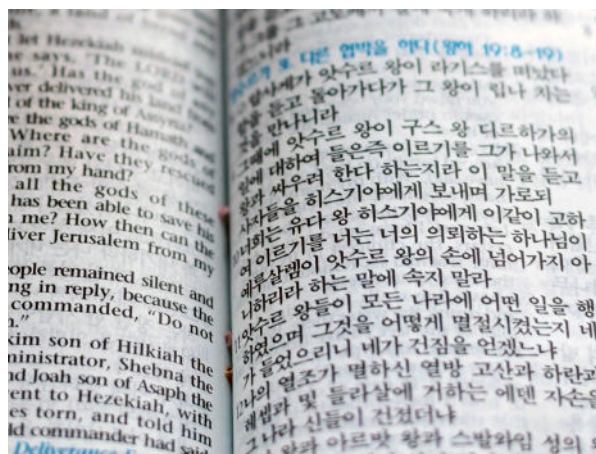 let Hezekiah
he says, 'The LORD
us.' Has the god of
ever delivered his land from
of the king of Assyria?
re the gods of Hamath and
Where are the gods of
aim? Have they rescued
from my hand?
all the gods of these
has been able to save his
m me? How then can the
liver Jerusalem from my
ople remained silent and
ng in reply, because the
commanded, "Do not
m."
kim son of Hilkiah the
ministrator, Shebna the
nd Joah son of Asaph the
ent to Hezekiah, with
es torn, and told him
ld commander had said
앗수르가 또 다른 협박을 하다(왕하 19:8-19)
랍사게가 앗수르 왕이 라기스를 떠났다
함을 듣고 돌아가다가 그 왕이 립나 치는
것을 만나니라
그때에 앗수르 왕이 구스 왕 디르하가의
일에 대하여 들은즉 이르기를 그가 나와서
왕과 싸우려 한다 하는지라 이 말을 듣고
사자들을 히스기야에게 보내며 가로되
10 너희는 유다 왕 히스기야에게 이같이 고하
여 이르기를 너는 너의 의뢰하는 하나님이
예루살렘이 앗수르 왕의 손에 넘어가지 아
니하리라 하는 말에 속지 말라
11 앗수르 왕들이 모든 나라에 어떤 일을 행
하였으며 그것을 어떻게 멸절시켰는지 네
가 들었으리니 네가 건짐을 얻겠느냐
12 나의 열조가 멸하신 열방 고산과 하란과
레셉과 및 들라살에 거하는 에덴 자손을
그 나라 신들이 건졌더냐
왕과 아르밧 왕과 스발와임 성의